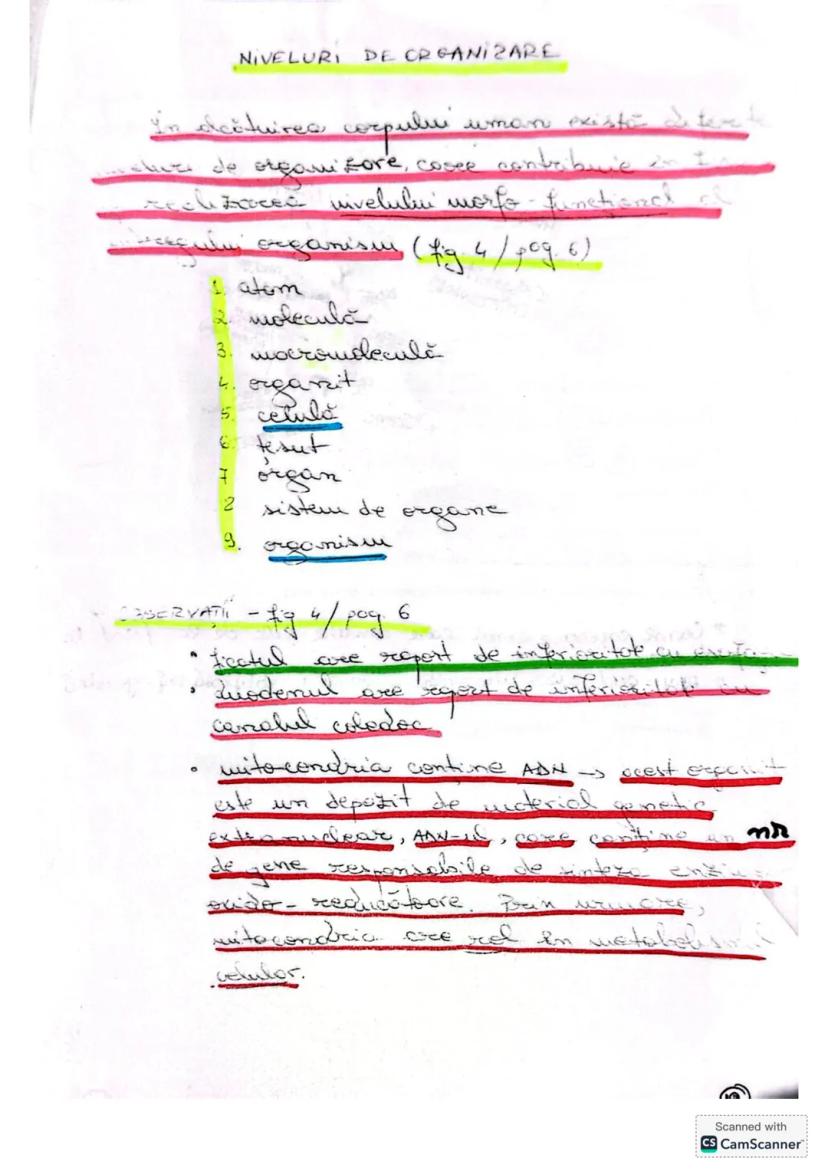 NIVELURI DE ORGANIZARE
În alcătuirea corpului uman există
de organizare, care contribuie în
realizarea nivelului morfo-funcțional al
întregului organism (fig. 4/pag. 6)
1. atom
2. moleculă
3. macromoleculă
4. organit
5. celulă
6. țesut
7 organ
8 sistem de organe
9. organism
OBSERVAȚII - fig 4/pag. 6
• ficatul are raport de inferioritate cu
• duodenul are raport de inferioritate cu
canalul coledoc
• mitocondria conține ADN → acest organit
este un depozit de material genetic
extranuclear, ADN-ul, care conține un nr
de gene responsabile de sinteza
oxido-reducătoare. Prin urmare,
mitocondria are rol în metabolismul
celular.
Scanned with
CS CamScanner